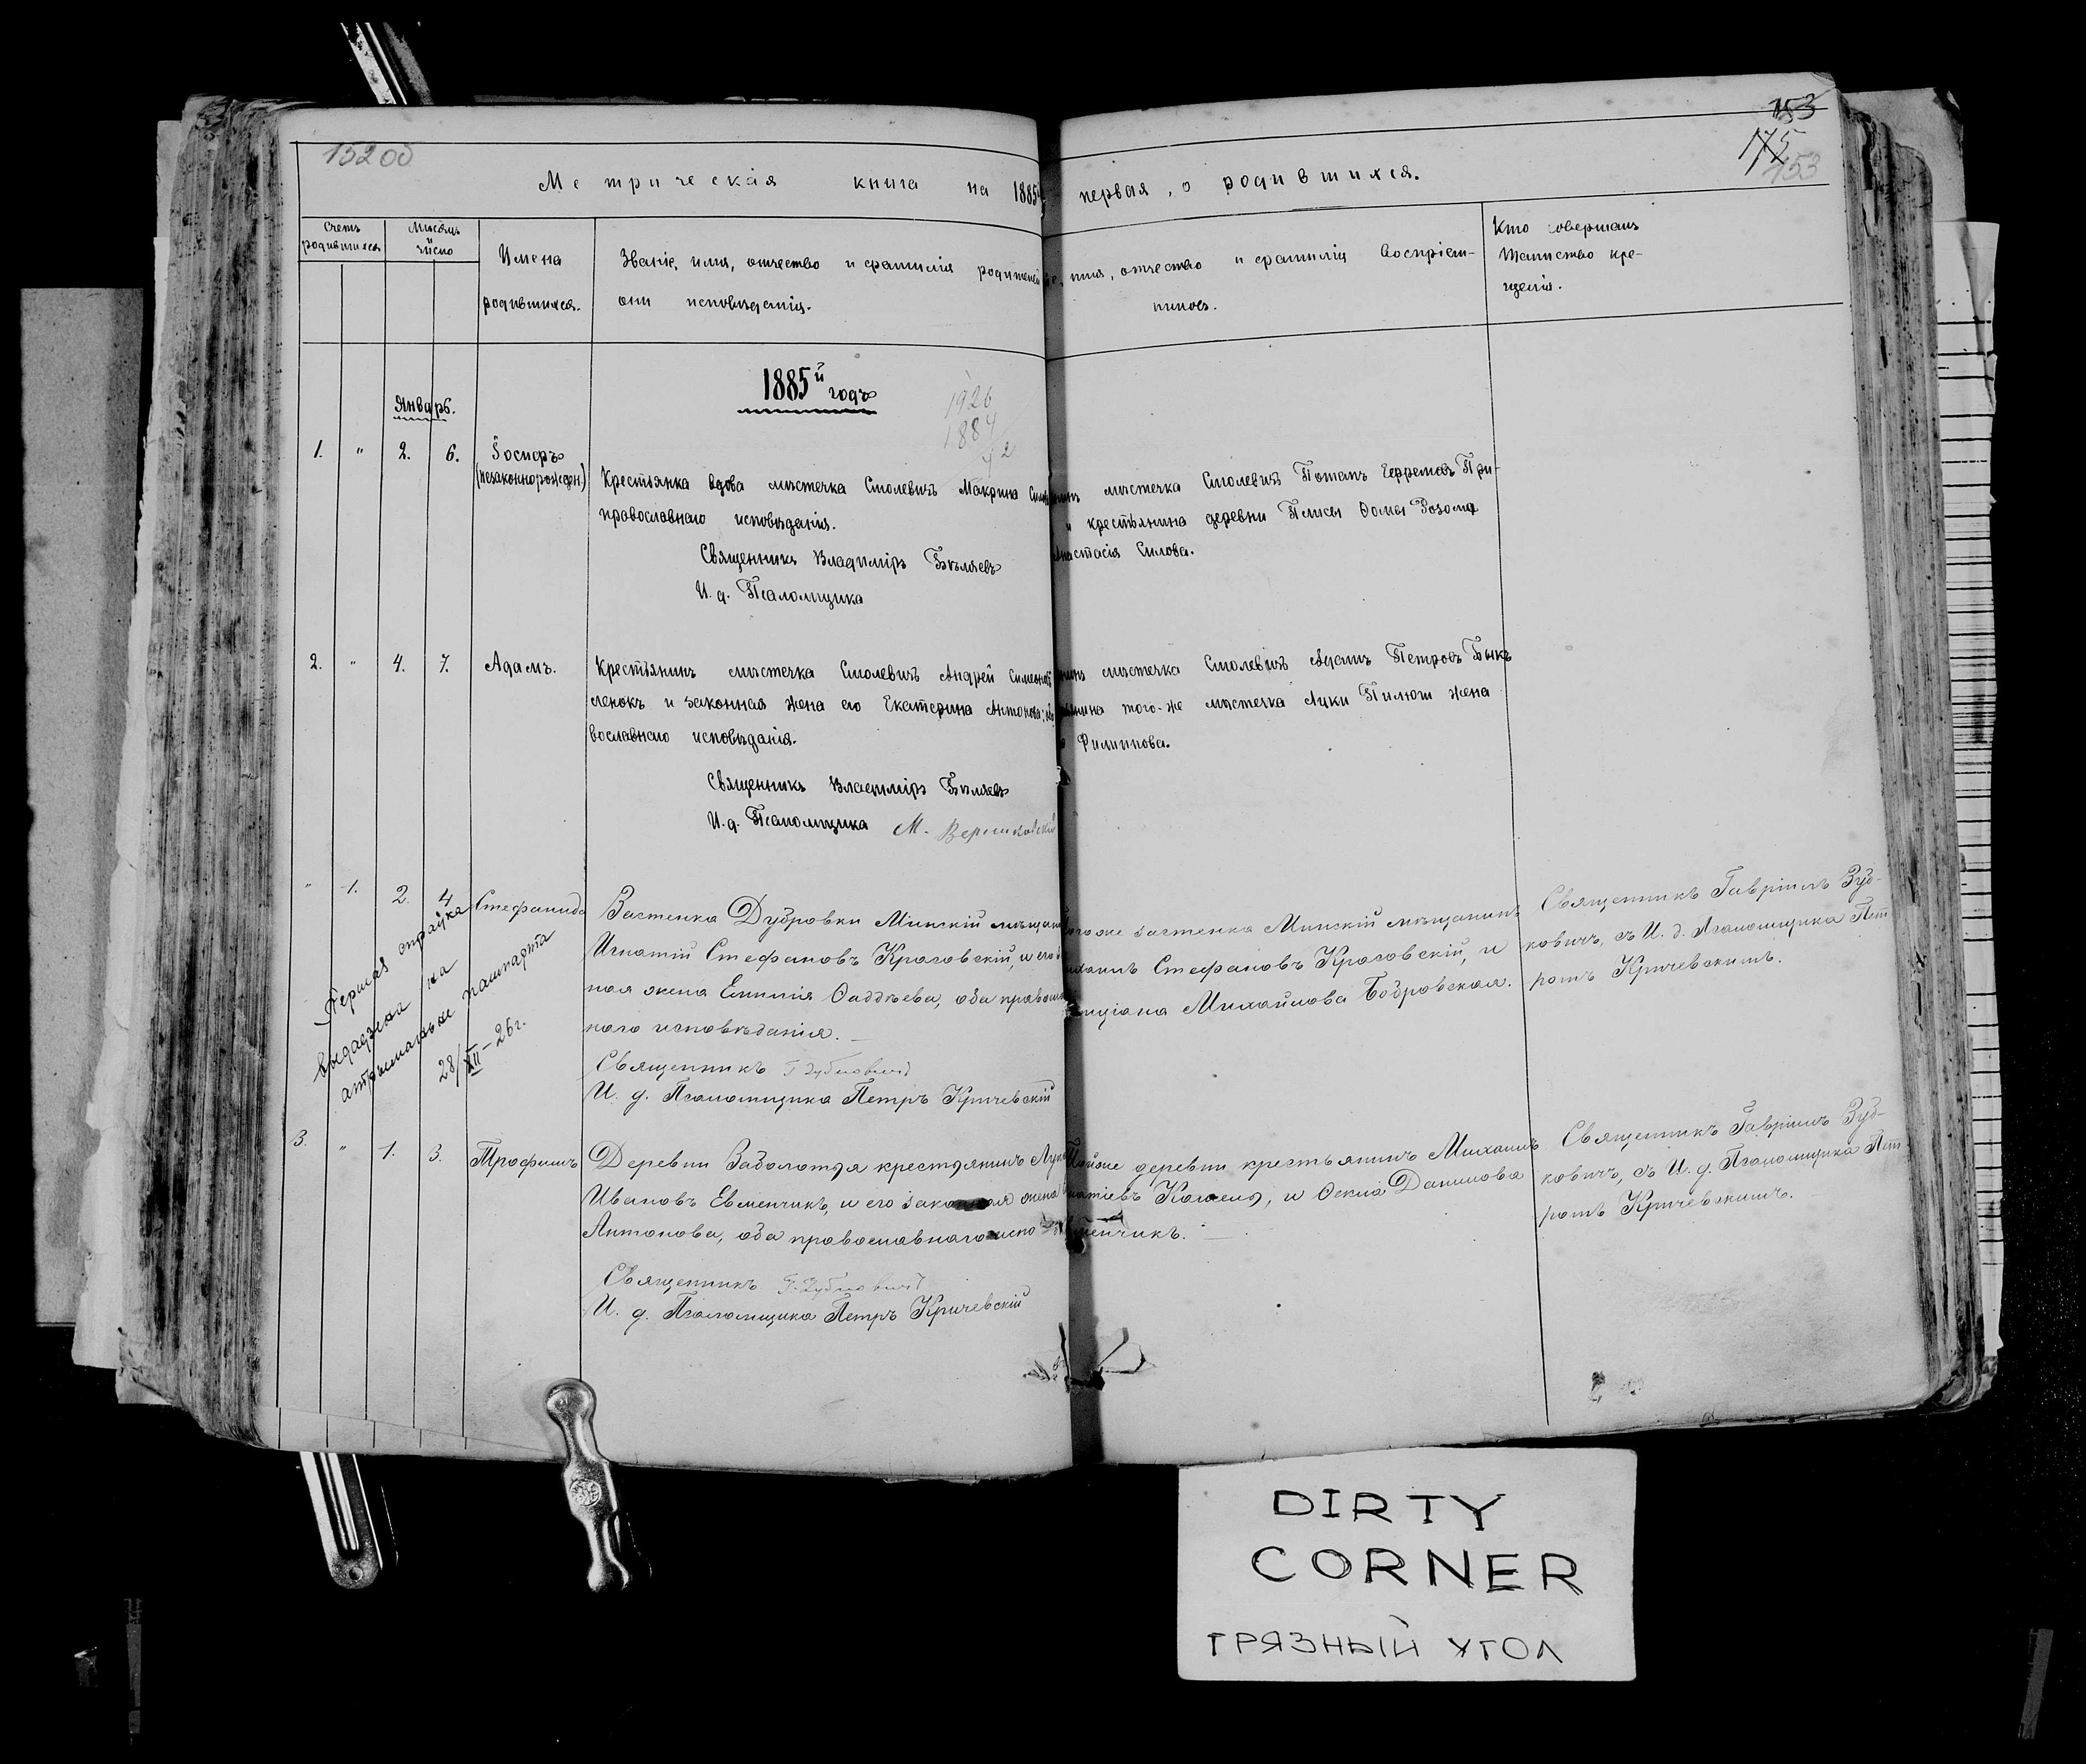 152 об
153
175
153
Метрическая книга на 1885й
первая, о родившихся.
Счетъ родившихся
Мѣсяцъ и число
Имена родившихся.
Званіе, имя, отчество и фамилія родителей
они исповѣданія.
имя, отчество и фамилія воспріем-
никовъ.
Кто совершалъ
таинство кре-
щенія.
1885й годъ
1926
1884
42
Январь.
1. " 2. 6. Іосифъ
(незаконнорожден.)
Крестьянка вдова мѣстечка Смолевичъ Макрина
православнаго исповѣданія.
Священникъ Владиміръ Бѣляевъ
И. д. Псаломщика
мѣстечка Смолевичъ Потапъ Ефремовъ При-
и крестьянина деревни Плисы Ѳомы Розома
Анастасія Силова.
2. " 4. 7. Адамъ.
Крестьянинъ мѣстечка Смолевичъ Андрей Симеоновъ
ленокъ и законная жена его Екатерина Антонова:
вославнаго исповѣданія.
Священникъ Владиміръ Бѣляевъ
И. д. Псаломщика М.
мѣстечка Смолевичъ Адамъ Петровъ Быкъ
того-же мѣстечка Луки Пилюш жена
Филиппова.
" 1. 2. 4 Стефанида
Застенка Дубровки Минскій мѣщан
Игнатій Стефановъ Красовскій, и его
ная жена Емилія Ѳаддѣева, оба правосла
наго исповѣданія.
Священникъ Г. Зубковичъ
И. д. Псаломщика Петръ Кричевскій
тогоже застенка Минскій мѣщанинъ
Михаилъ Стефановъ Красовскій, и
Михайлова Бобровская.
Священникъ Гавріилъ Зуб-
ковичъ, съ И. д. Псаломщика Пет
ромъ Кричевскимъ.
Першая спраўка
выдадзена на
атрыманьне пашпарта
28/XII–26г.
3. " 1. 3. Трофимъ
Деревни Заболотья крестьянинъ Лука
Ивановъ Евменчикъ, и его законная жена
Антонова, оба православнаго испо
Священникъ Г. Зубковичъ
И. д. Псаломщика Петръ Кричевскій
Тойже деревни крестьянинъ Михаилъ
Игнатіевъ Кошель, и Ѳекла Данилова
Евменчикъ.
Священникъ Гавріилъ Зуб-
ковичъ, съ И. д. Псаломщика Пет
ромъ Кричевскимъ.
DIRTY
CORNER
ГРЯЗНЫЙ УГОЛ